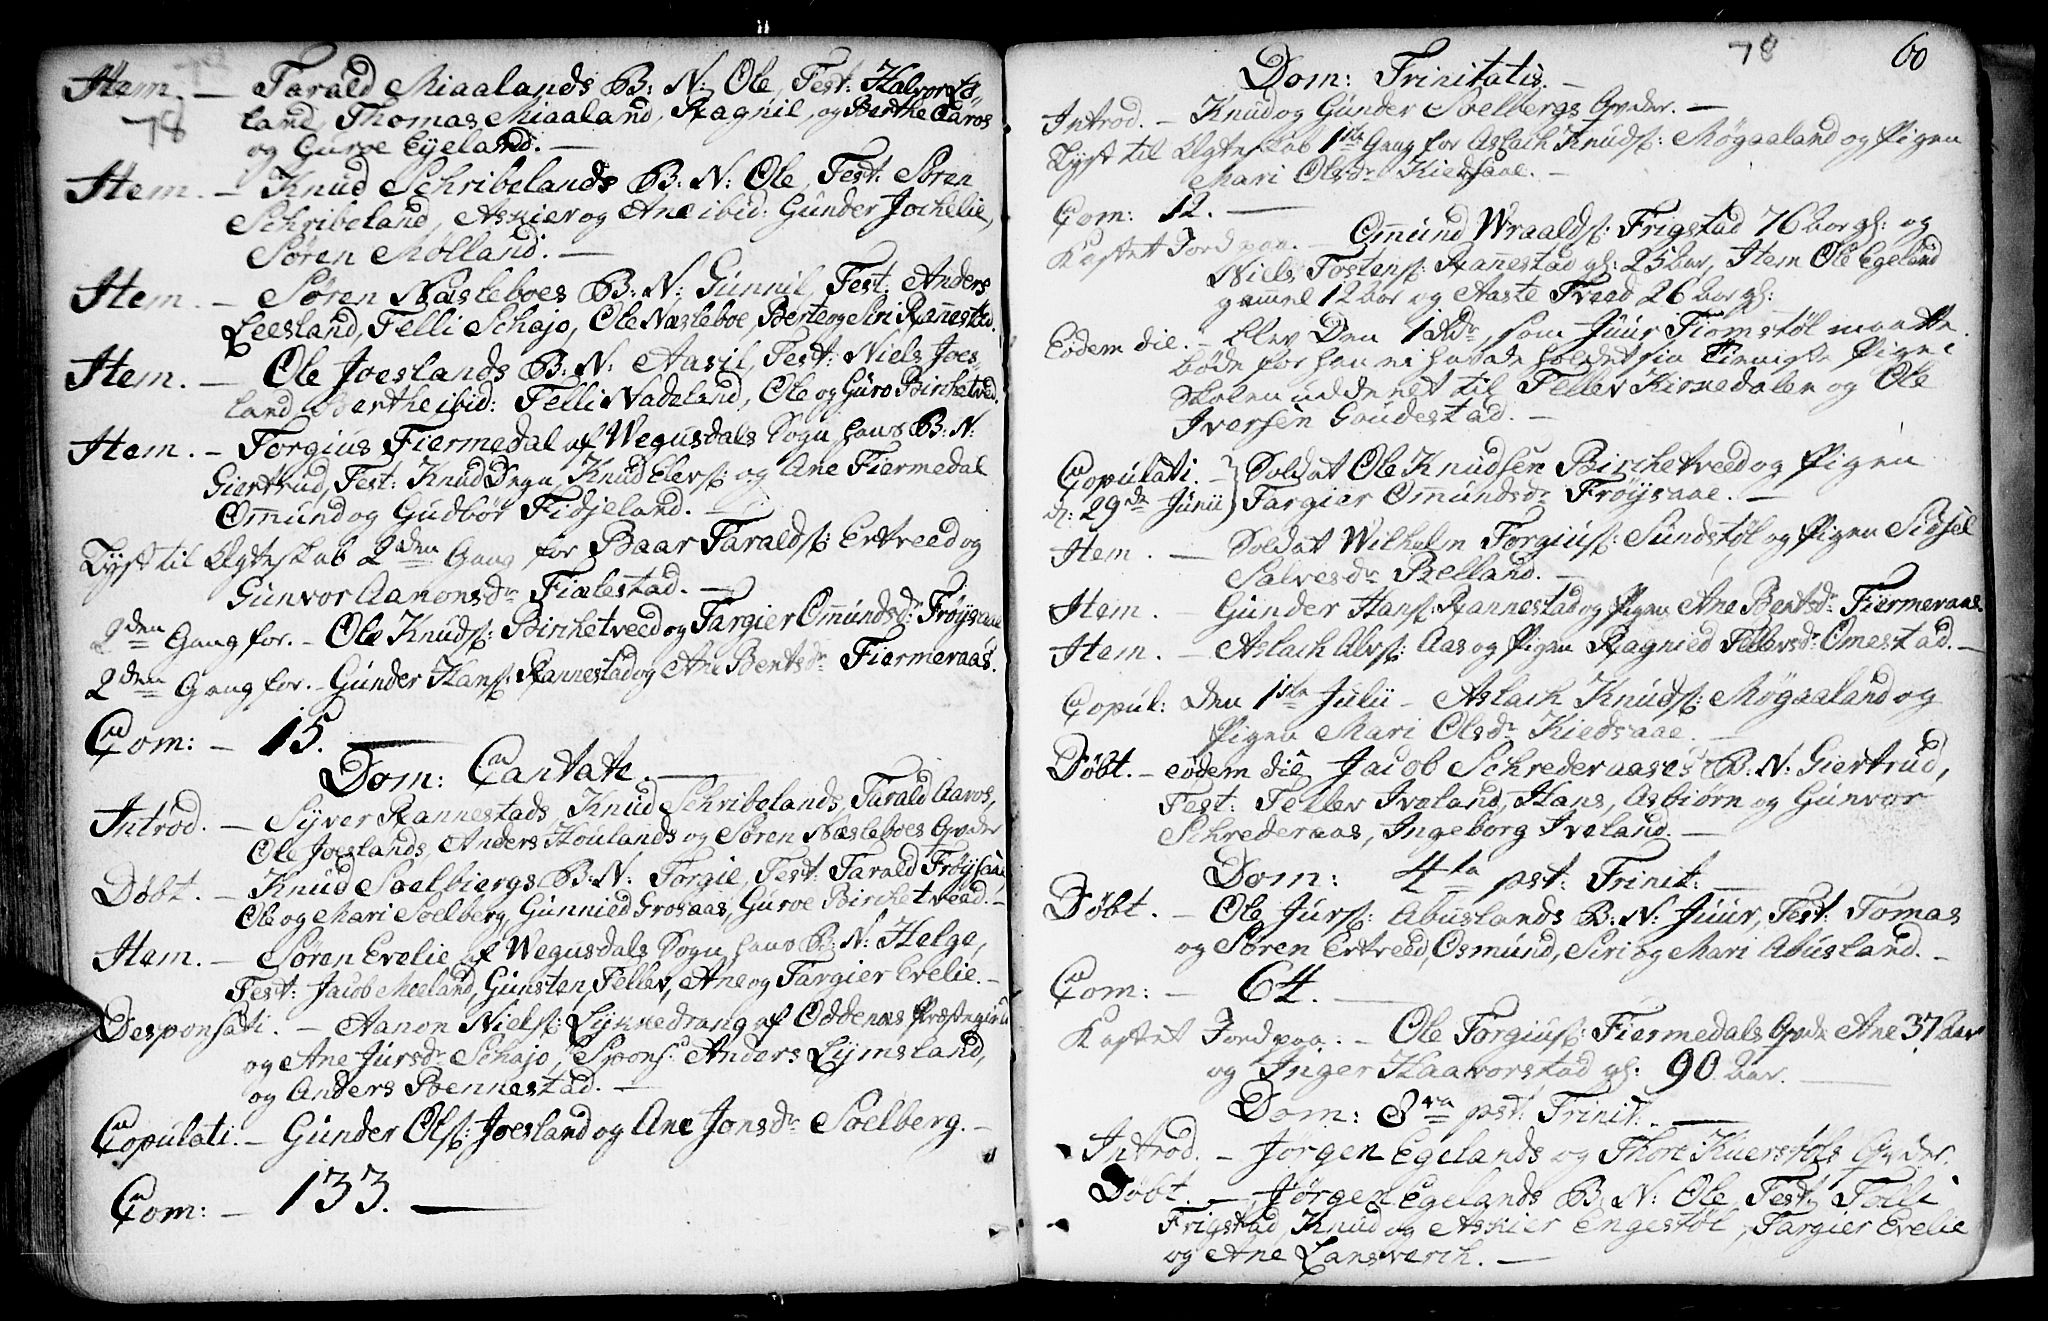 78
Item. – Tarald Miaalands B: N: Ole, Test: Halvor Lö-
land, Thomas Miaaland, Ragnil, og Berthe Aaros
og Guroe Eyeland. –
Item. – Knud Schribelands B: N: Ole, Test: Søren
Schribeland, Askier og Ane ibid: Gunder Jortelie,
Søren Molland. –
Item. – Søren Næsleboes B: N: Gunnil, Test: Anders
Leesland, Telli Schajo, Ole Næsleboe, Berte og Siri Rañestad.
Item. – Ole Joeslands B: N: Aasil, Test: Niels Joes-
land, Berthe ibid: Telli Nadeland, Ole og Guro Birchetved.
Item. – Torgius Fiermedal af Wegusdals Sogn hans B: N:
Giertrud, Test: Knud Degn, Knud Elevs: og Ane Fiermedal
Omund og Gudbør Fidjeland. –
Lyst til Ægteskab 2den Gang for Baar Taralds: Ertveed og
Gunvor Aanonsdr Fialestad. –
2den Gang for. – Ole Knuds: Birchetveed og Targier Omundsdr Frøysaae
2den Gang for. – Gunder Hans: Rannestad og Ane Bentsdr Fiermeraas.
Com: – 15. –
Dom: Cantate. –
Introd. – Syver Rannestads, Knud Schribelands, Tarald Aaros,
Ole Joeslands, Anders Houlands og Søren Næsleboes Qvder
Døbt. – Knud Soelbiergs B: N: Torgie, Test: Tarald Frøysaae,
Ole og Mari Soelberg, Gunnied Grosaas, Guroe Birchetveed. –
Item. – Søren Evelie af Wegusdals Sogn hans B: N: Helge,
Test: Jacob Moeland, Gunsten, Tellev, Ane og Targier Evelie. –
Desponsati. – Aanon Niels: Lykkedrang af Oddenæs Præstegield
og Ane Jursdr Schajo, Spons: Anders Lymsland,
og Anders Roennestad. –
Copulati. – Gunder Ols: Joesland og Ane Jonsdr Soelberg. –
Com: – 133. –
78 60
Dom: Trinitatis. –
Introd. – Knud og Gunder Soelbergs Qvder. –
Lyst til Ægteskab 1ste Gang for Aslach Knuds: Møgaaland og Pigen
Mari Olsdr Kiedsaae. –
Com: 12. –
Kastet Jord paa. – Omund Wraalds: Frigstad 76 Aar gl: og
Niels Tostens: Rañestad gl: 25 Aar, Item Ole Egeland
gamel 12 Aar og Aaste Treed 26 Aar gl:
Eodem die. – blev Den 1 Rdr, som Juur Fiomstøl maatte
bøde for han ei havde holdet sin Tieniste Pige i
Skolen uddeelet til Tellev Kirnedalen og Ole
Iversen Goudestad. –
Copulati. – Soldat Ole Knudsen Birchetveed og Pigen
d: 29de Junii Targier Omundsdr Frøysaae. –
Item. – Soldat Wilhelm Torgius: Sundstøl og Pigen Sidsel
Salvesdr Belland. –
Item. – Gunder Hans: Rannestad og Pigen Ane Bentsdr Fiermeraas
Item. – Aslach Alvs: Aas og Pigen Ragnied Tellevsdr Omestad. –
Copul: den 1ste Julii – Aslach Knuds: Møgaaland og
Pigen Mari Olsdr Kiedsaae. –
Døbt. – eodem die Jacob Schrederaases B: N: Giertrud,
Test: Tellev Iveland, Hans, Asbiørn og Gunvor
Schrederaas, Ingeborg Iveland. –
Dom: 4ta pst: Trinit: –
Døbt. – Ole Jurs: Abuslands B: N: Juur, Test: Tomas
og Søren Ertveed, Osmund, Siri og Mari Abusland. –
Com: – 64. –
Kastet Jord paa: – Ole Torgius: Fiermedals Qvde Ane 37 Aar
og Inger Haavorstad gl: 90 Aar. –
Dom: 8va pst: Trinit. –
Introd. – Jorgen Egelands og Thore Kuerstøls Qvder.
Døbt. – Jørgen Egelands B: N: Ole, Test: Telli
Frigstad, Knud og Askier Engestøl, Targier Evelie
og Ane Lansverch. –